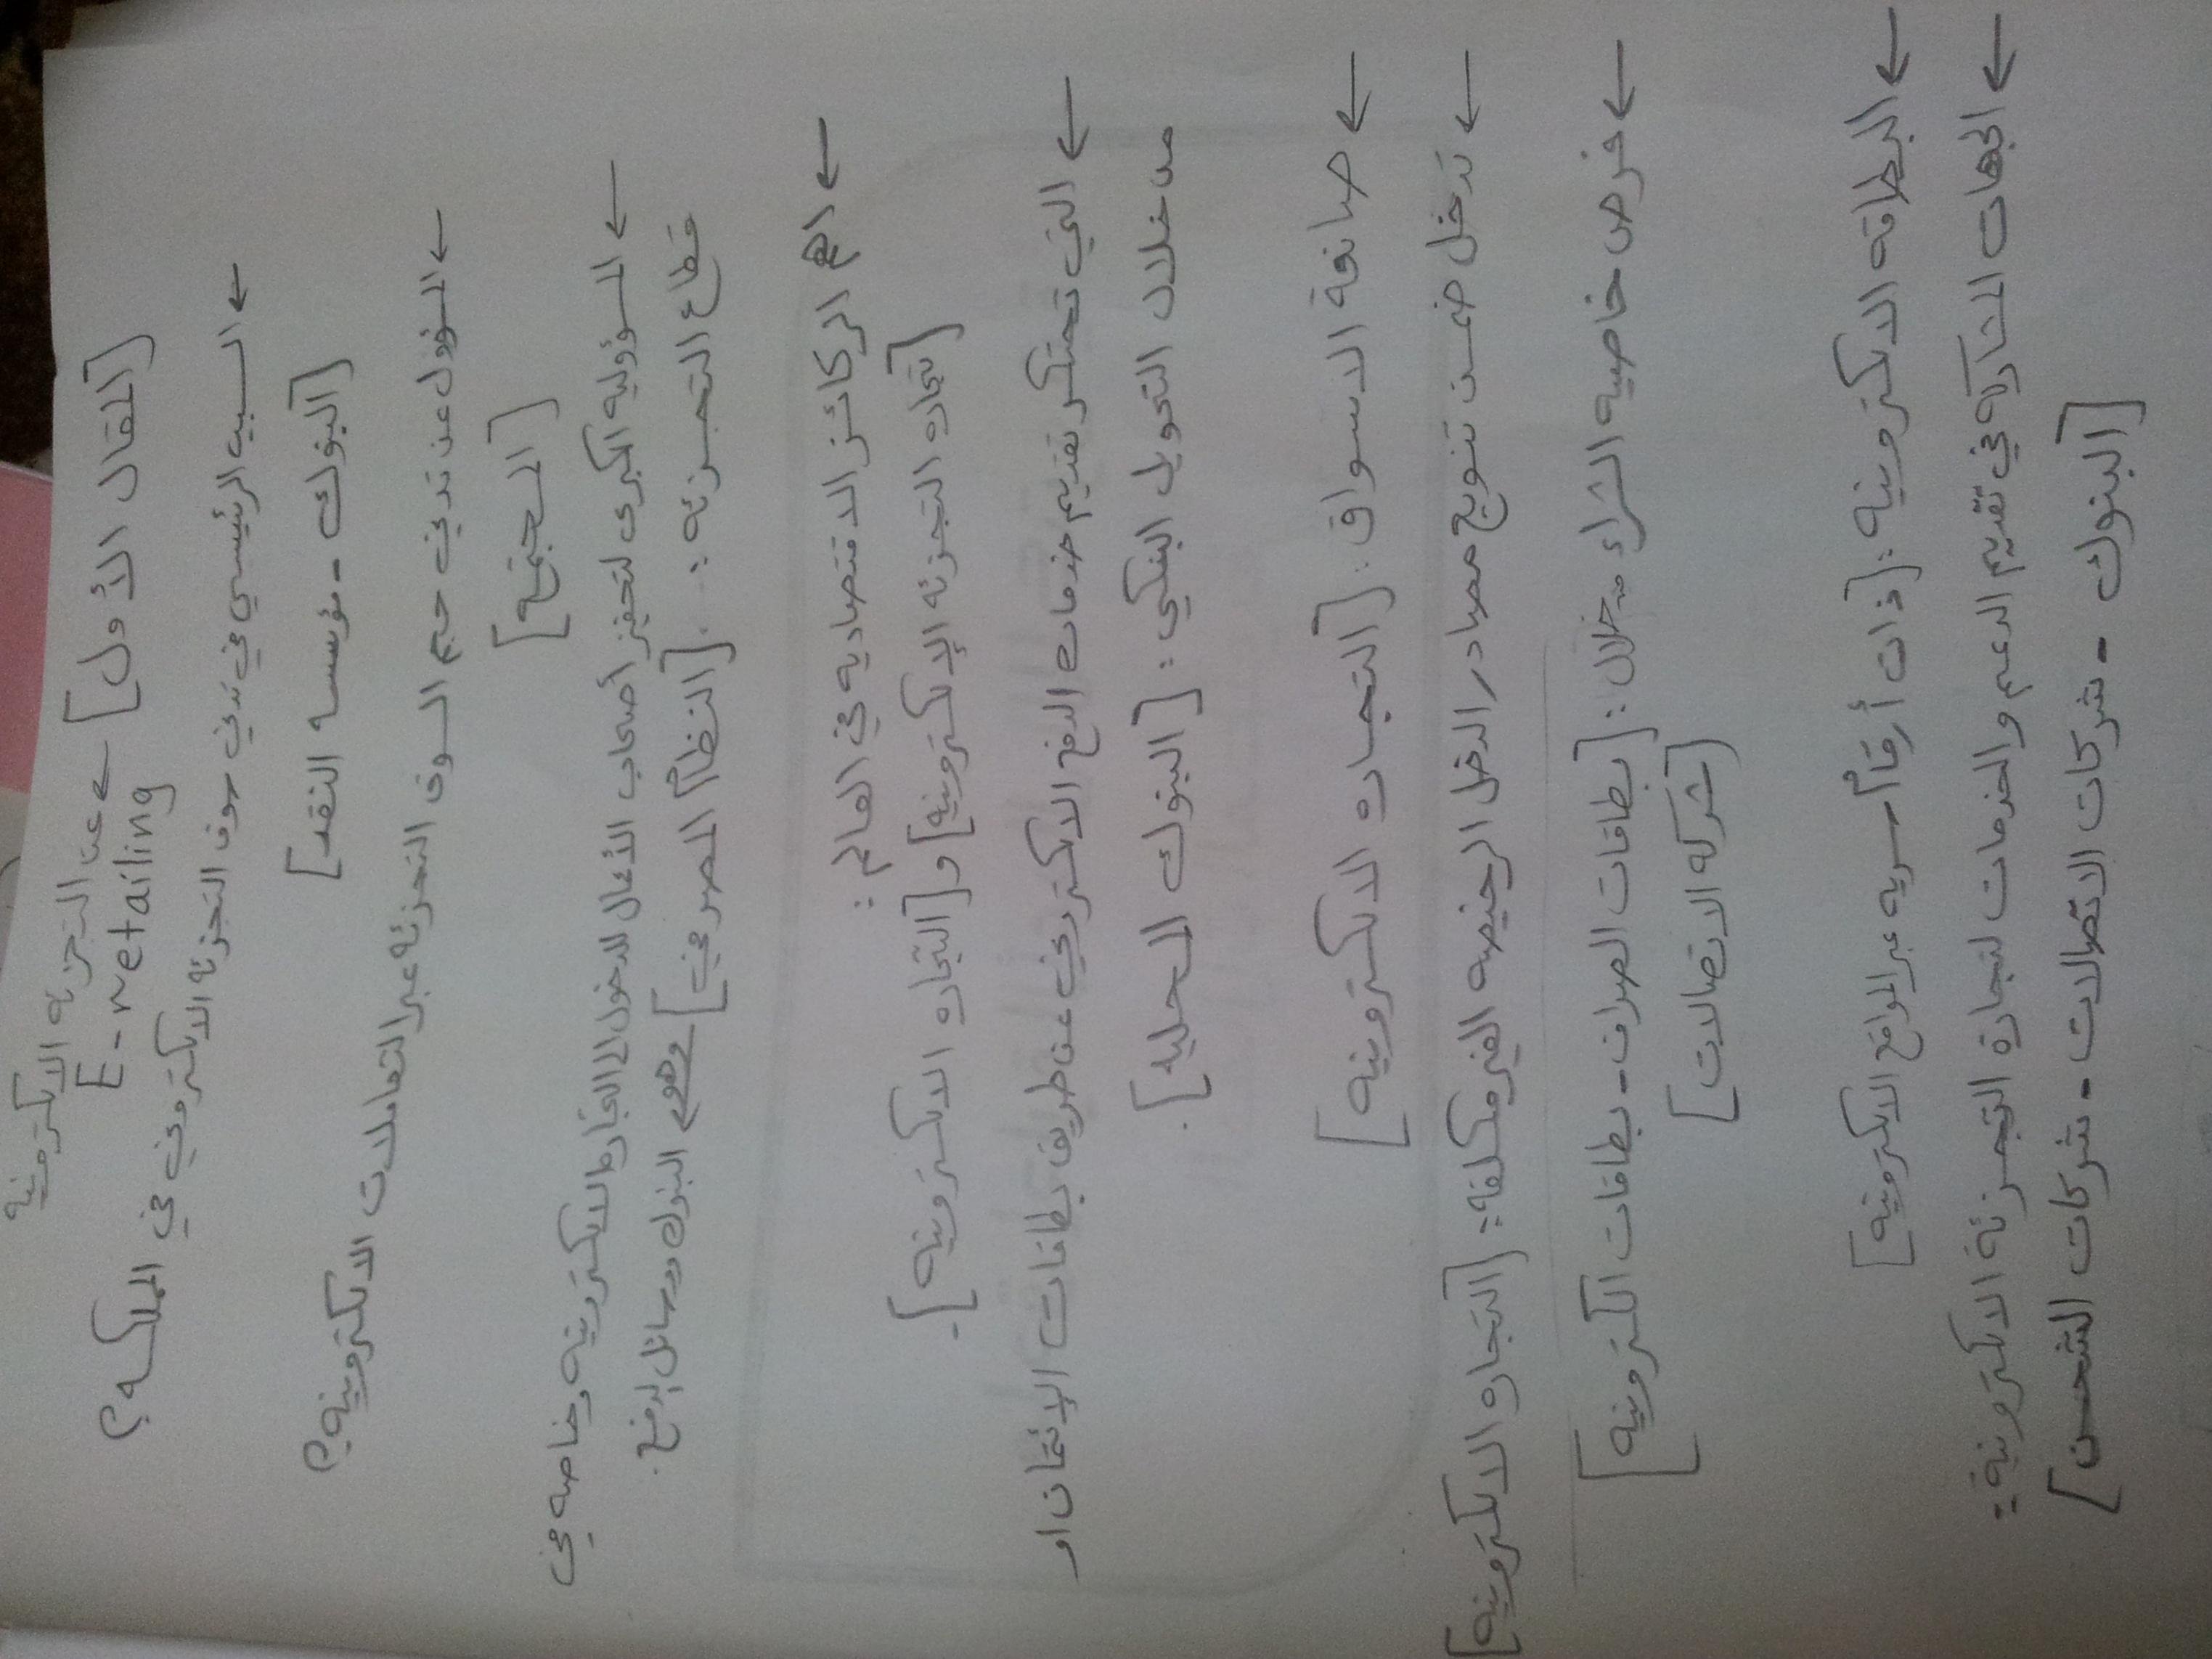 [المقال الأول] ← عنا التجزئه الالكترونيه
E-retailing
← السبب الرئيسي في تدني سوق التجزئه الالكتروني في المملكه؟
[البنوك - مؤسسه النقد]
← المسؤول عن تدني حجم السوق التجزئه عبر التعاملات الالكترونيه؟
[المجتمع]
← المسؤوليه الكبرى لتحفيز أصحاب الأعمال للدخول الى التجاره الالكترونيه وخاصه في
قطاع التجزئه : [النظام المصرفي] وهم البنوك ووسائل الدفع.
← اهم الركائز الاقتصاديه في العالم :
[تجاره التجزئه الإلكترونيه] و [التجاره الالكترونيه].
← التي تحتكر تقديم خدمات الدفع الالكتروني عن طريق بطاقات الإئتمان او
من خلال التحويل البنكي : [البنوك المحليه].
← صانعة الاسواق : [التجاره الالكترونيه]
← تدخل ضمن تنويع مصادر الدخل الرخيصه الغير مكلفه : [التجاره الالكترونيه]
← فرض خاصيه الشراء من خلال : [بطاقات الصراف - بطاقات الكترونيه]
[شركه الاتصالات]
← البطاقه الالكترونيه : [ذات أرقام سريه عبر المواقع الالكترونيه]
← الجهات المشاركه في تقديم الدعم والخدمات لتجارة التجزئة الالكترونية :
[البنوك - شركات الاتصالات - شركات الشحن]